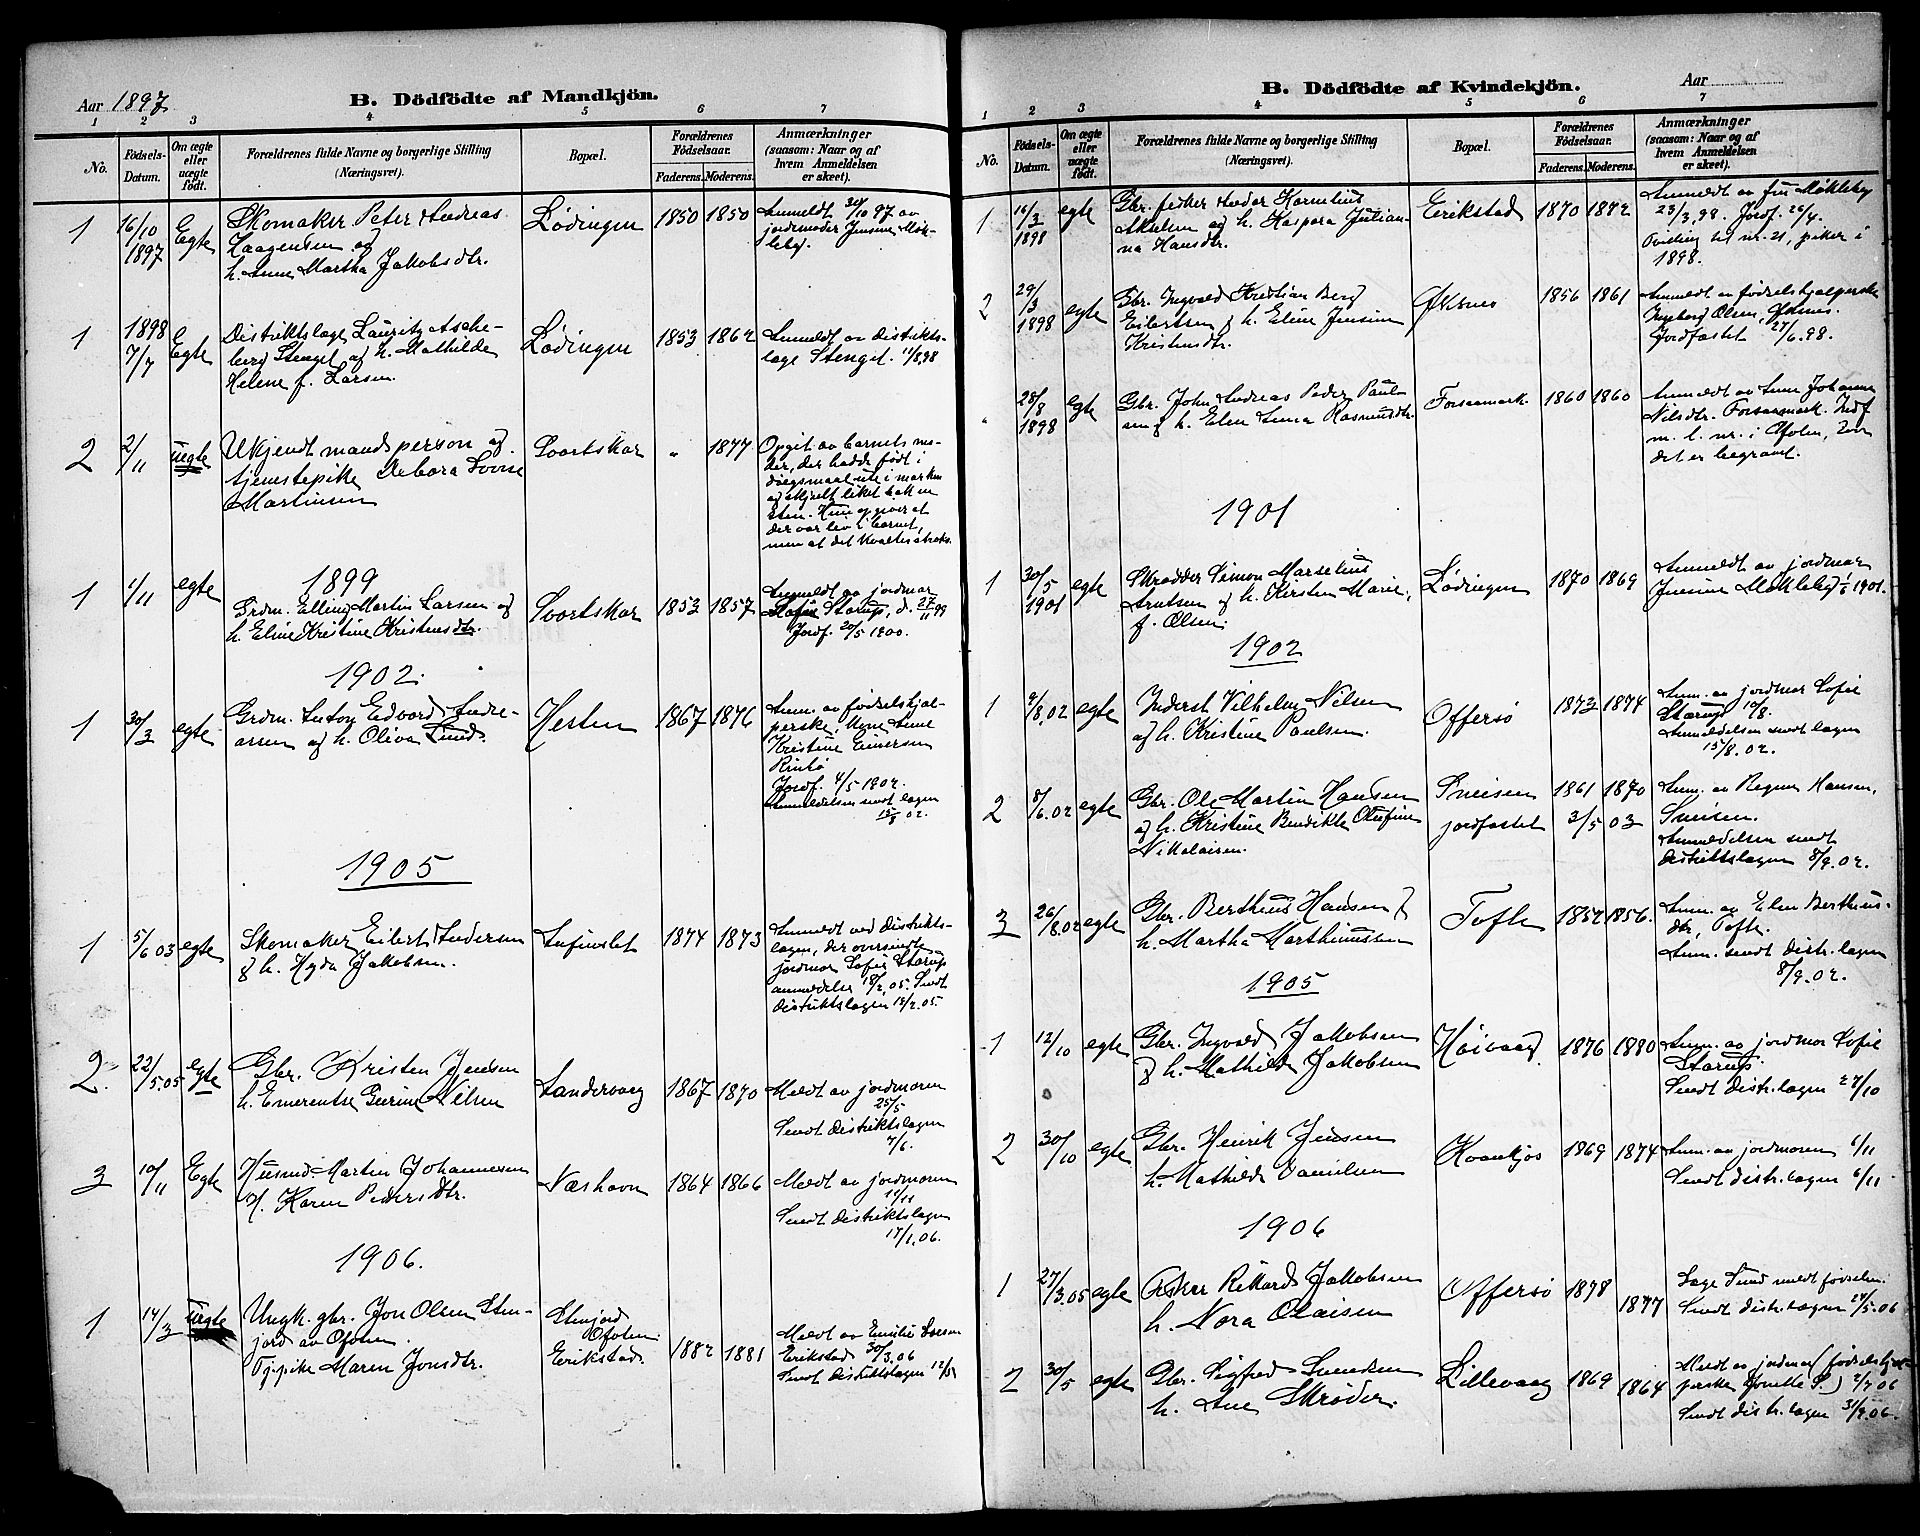 Aar 1897
B. Dödfödte af Mandkjön.
1 2 3 4 5 6 7
No.
Födsels-Datum.
Om ægte eller uægte födt.
Forældrenes fulde Navne og borgerlige Stilling (Næringsvei).
Bopæl.
Forældrenes Födselsaar.
Faderens. Moderens.
Anmærkninger (saasom: Naar og af hvem Anmeldelsen er skeet).
1 16/10 1897 Egte
Skomaker Peter Andreas
Haagensen og
h. Anne Martha Jakobsdtr.
Lødingen 1850 1850
Anmeldt 30/10 97 av
jordmoder Jensine Møk-
leby.
1 1898 7/7 Egte
Distriktslæge Lauritz Asche-
berg Stengel af h. Mathilde
Helene f. Larsen.
Lødingen 1853 1862
Anmeldt av distrikts-
læge Stengel. 11/8 98
2 2/11 uegte
Ukjendt mandsperson og
tjenestepike Debora Lovise
Martinsen
Svartskar " 1877
Opgit av barnets mo-
der, der hadde født i
dølgsmaal ute i marken
og skjult liket bak en
sten. Hun opgiver at
der var liv i barnet,
men at det kvaltes straks.
1899
1 1/11 egte
Grdm. Elling Martin Larsen og
h. Eline Kristine Kristensdtr.
Svartskar 1853 1857
Anmeldt av jordmor
Sofie Starup, d. 27/11 99
Jordf. 20/5 1900.
1902.
1 30/3 egte
Grdm. Anton Edvard Andre-
assen og h. Oliva Lund.
Hesten 1867 1876
Anm. av fødselshjæl-
perske, Anne
Kristine Einersen
Rinbø
Jordf. 4/5 1902.
Anmeldelsen sendt lægen
15/8 02.
1905
1 5/6 03 egte
Skomaker Eilert Andersen
& h. Hyda Jakobsen.
1874 1873
Anmeldt ved distrikts-
lægen, der oversendte
jordmor Sofie Starups
anmeldelse 18/2, 05. Sendt
distriktslægen 18/2.05
2. 22/5.05 egte
Gbr. Kristen Jensen
h. Emerentse Gurine Nilsen
Sandervaag 1867 1870
Meldt av jordmoren
25/5
Sendt distriktslægen
7/6.
3 10/11 Egte
Husmd. Martin Johannessen
H. Karen Pedersdtr.
Næshavn 1864 1866
Meldt av jordmoren
14/11
Sendt distriktslægen
17/1.06.
1906.
1 14/3 Uegte
Ungk. gbr. Jon Olsen Stm-
jord av Ofoten.
Tj.pike Maren Jonsdtr.
Ofoten.
Eerikstad. 1882 1881
Meldt av Emilie Larsen
Eerikstad 30/3.06
Sendt distriktslægen 12/5
Aar
B. Dödfödte af Kvindekjön.
1 2 3 4 5 6 7
No.
Födsels-Datum.
Om ægte eller uægte födt.
Forældrenes fulde Navne og borgerlige Stilling (Næringsvei).
Bopæl.
Forældrenes Födselsaar.
Faderens. Moderens.
Anmærkninger (saasom: Naar og af hvem Anmeldelsen er skeet).
1 16/3 1898 egte
Gbr. fisker Peder Kornelius
Akselsen og h. Kaspara Julian-
na Hansdtr.
Eerikstad 1870 1872
Anmeldt av fru Møkleby
23/3.98. Jordf. 26/4.
Tvilling til nr. 21, piker i
1898.
2 29/3 1898 egte
Gbr. Ingvald Kristian Berg
Eilertsen & h. Eline Jensine
Kristensdtr.
Øksnes 1856 1861
Anmeldt av fødselshjælperske
Ingeborg Olsen, Øksnes.
Jordfæstet 27/6.98.
" 28/8 1898 egte
Gbr. John Andreas Peder Paul-
sen & h. Elen Anna Rasmusdtr.
Forsaamark 1860 1860
Anmeldt av Anne Johanna
Nilsdtr. Forsaamark. Indf.
m. l. nr. i Ofoten, hvor
det er begravet.
1901
1 30/5 1901 egte
Skrædder Simon Marselius
Arntsen & h. Kirsten Marie,
f. Olsen.
Lødingen 1870 1869
Anmeldt av jordmor
Jensine Møkleby 1/6 1901.
1902
1 9/8.02 egte
Inderst Vilhelm Nilsen
af h. Kristine Paulsen.
Offersø 1873 1874
Anm. av jordmor Sofie
Starup 10/8.
Anmeldelsen sendt lægen
15/8.02.
2 8/6.02 egte
Gbr. Ole Martin Hansen
og h. Kristine Bendikte Olufine
Nikolaisen.
Sneisen 1861 1870
jordfæstet 3/5 03
Anm. av Regine Hansen,
Sneisen.
Anmeldelsen sendt
distriktslægen 8/9.02.
3 26/8.02 egte
Gbr. Berthius Hansen &
h. Martha Marthinussen
Tofte 1852 1856.
Anm. av Elen Berthius-
dtr, Tofte.
Anm. sendt distr.lægen
8/9.02.
1905
1 12/10 egte
Gbr. Ingvald Jakobsen
& h. Mathilde Jakobsen
Høivaag 1876 1880
Anm. av jordmor Sofie
Starup.
Sendt distr.lægen 27/10
2 30/10 egte
Gbr. Henrik Jensen
h. Mathilde Danielsen
Kvankjos 1869 1874
Anm. av jordmoren 6/11
Sendt distr.lægen 6/11
1906
1 27/3.05 egte
Fisker Rikard Jakobsen
h. Nora Olaisen
Offersø 1878 1877
Læge Sund meldt fødselen.
Sendt distr.lægen 27/5.06
2 30/5 egte
Gbr. Sigfred Svendsen
h. Ane Skrøder.
Lillevaag 1869 1864
Meldt av jordmor (fødselshjæl-
perske Jonette S.) 2/7 06
Sendt distr.lægen 31/7.06.